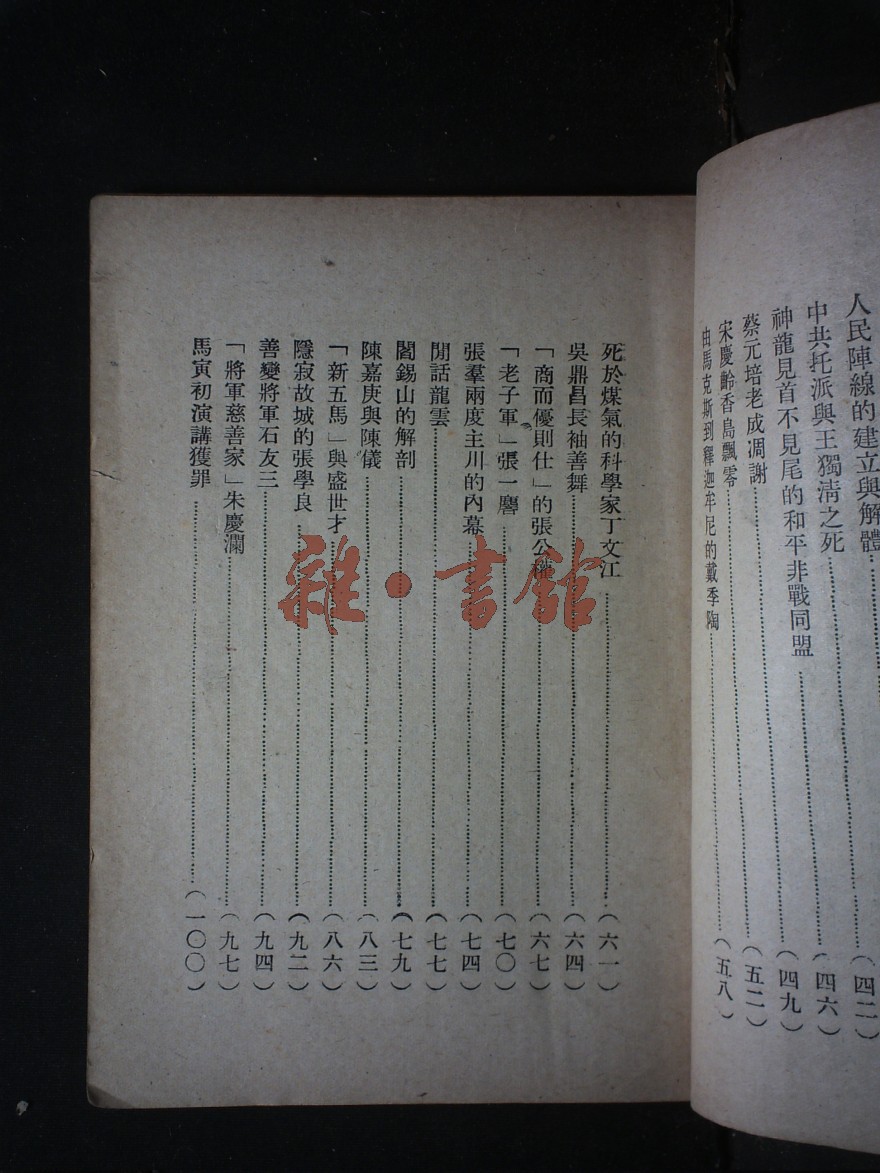 人民陣線的建立與解體⋯⋯(四二)
中共托派與王獨淸之死⋯⋯(四六)
神龍見首不見尾的和平非戰同盟⋯⋯(四九)
蔡元培老成凋謝⋯⋯(五二)
宋慶齡香島飄零
由馬克斯到釋迦牟尼的戴季陶⋯⋯(五八)
死於煤氣的科學家丁文江⋯⋯(六一)
吳鼎昌長袖善舞⋯⋯(六四)
「商而優則仕」的張公權⋯⋯(六七)
「老子軍」張一麐⋯⋯(七〇)
張羣兩度主川的內幕⋯⋯(七四)
閒話龍雲⋯⋯(七七)
閻錫山的解剖⋯⋯(七九)
陳嘉庚與陳儀⋯⋯(八三)
「新五馬」與盛世才⋯⋯(八六)
隱寂故城的張學良⋯⋯(九二)
善變將軍石友三⋯⋯(九四)
「將軍慈善家」朱慶瀾⋯⋯(九七)
馬寅初演講獲罪⋯⋯(一〇〇)
雜·書館